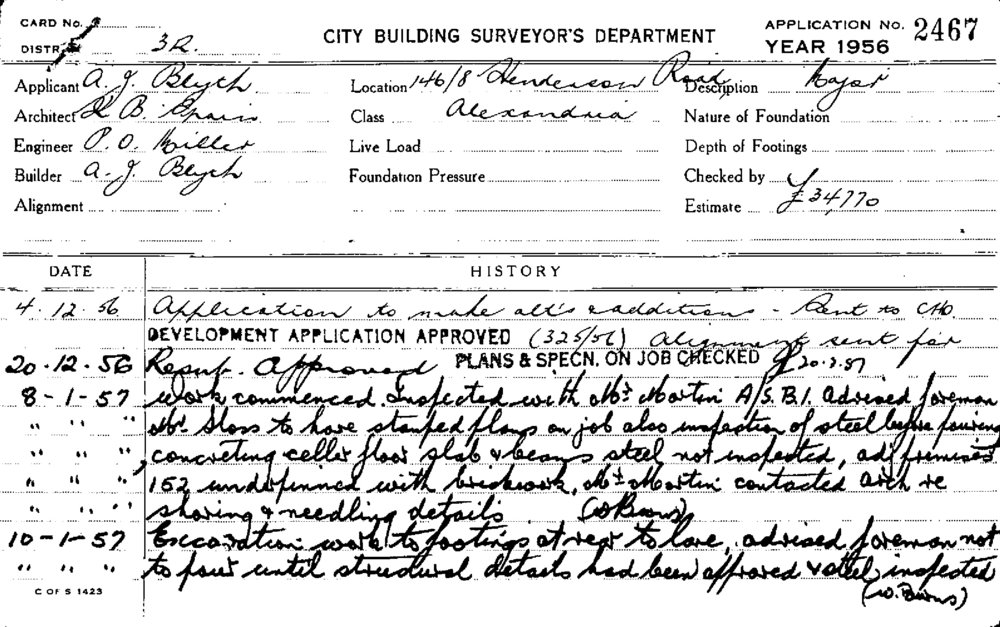 CARD No.
DISTR 3R.
CITY BUILDING SURVEYOR'S DEPARTMENT
APPLICATION No. 2467
YEAR 1956
Applicant A. J. Blyth Location 146/8 Henderson Road, Description Major
Architect B. Spain Class Alexandria Nature of Foundation
Engineer P. O. Miller Live Load Depth of Footings
Builder A. J. Blyth Foundation Pressure Checked by
Alignment Estimate £34,770
DATE HISTORY
4.12.56 Application to make alt's & additions - Sent to CHO.
DEVELOPMENT APPLICATION APPROVED (325/56) Alignment sent for
20.12.56 Resub. Approved PLANS & SPECN. ON JOB CHECKED 20.2.57
8-1-57 Work commenced. Inspected with Mr Martin A/S.B.I. advised foreman
" " " Mr. Sloss to have stamped plans on job also inspection of steel before pouring
" " " concreting celler floor slab & beams steel not inspected, adj premises
" " " 152 underpinned with brickwork, Mr Martin contacted arch re
" " " shoring & needling details (W Burns)
10-1-57 Excavation work to footings at rear to lane, advised foreman not
" " " to pour until structural details had been approved & steel inspected
(W. Burns)
C OF S 1423